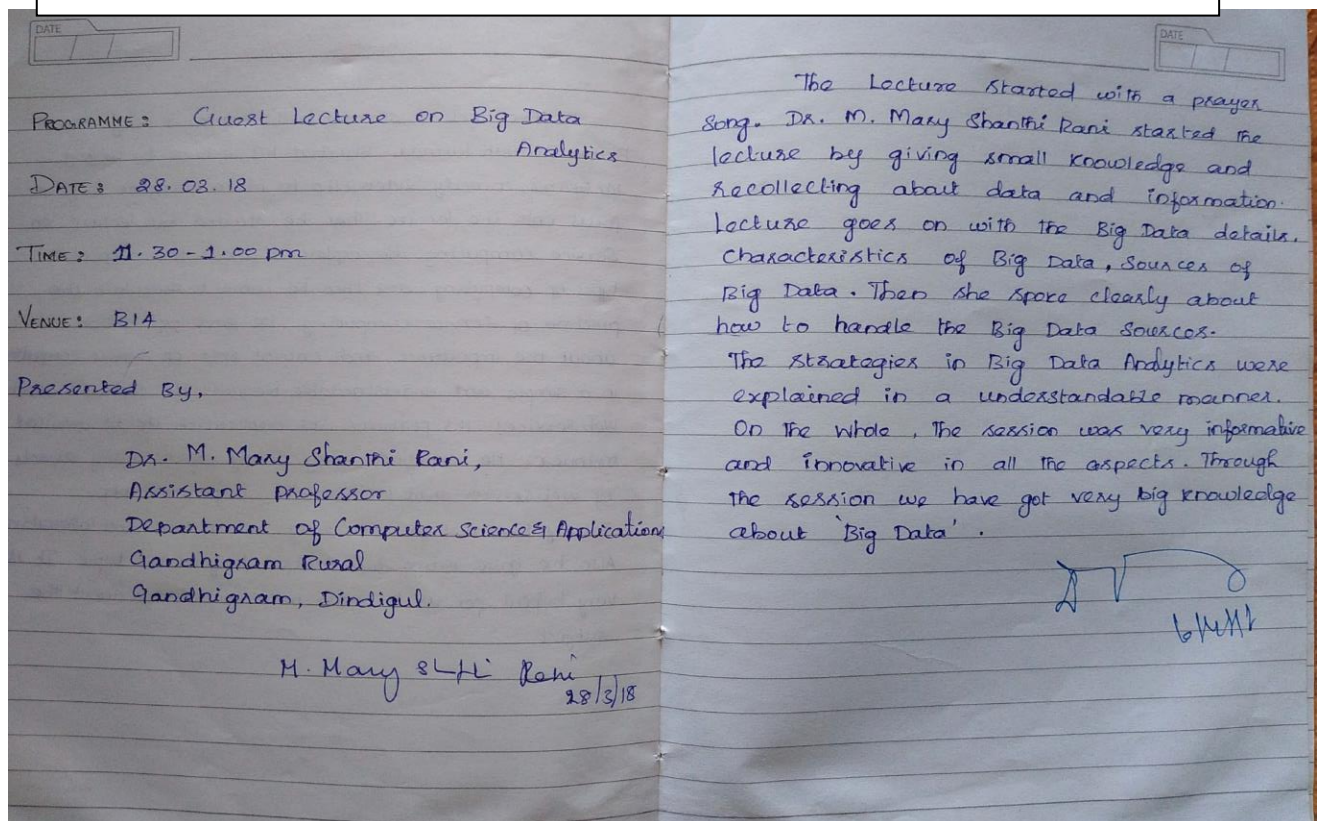 DATE
PROGRAMME: Guest Lecture on Big Data
Analytics
DATE: 28.03.18
TIME: 11.30 - 1.00 pm
VENUE: B14
Presented By,
Dr. M. Mary Shanthi Rani,
Assistant Professor
Department of Computer Science & Application
Gandhigram Rural
Gandhigram, Dindigul.
M. Mary Rani
28/3/18
DATE
The Lecture started with a prayer
song. Dr. M. Mary Shanthi Rani started the
lecture by giving small knowledge and
recollecting about data and information.
Lecture goes on with the Big Data details.
Characteristics of Big Data, Sources of
Big Data. Then she spoke clearly about
how to handle the Big Data Sources.
The strategies in Big Data Analytics were
explained in a understandable manner.
On the whole, the session was very informative
and innovative in all the aspects. Through
the session we have got very big knowledge
about 'Big Data'.